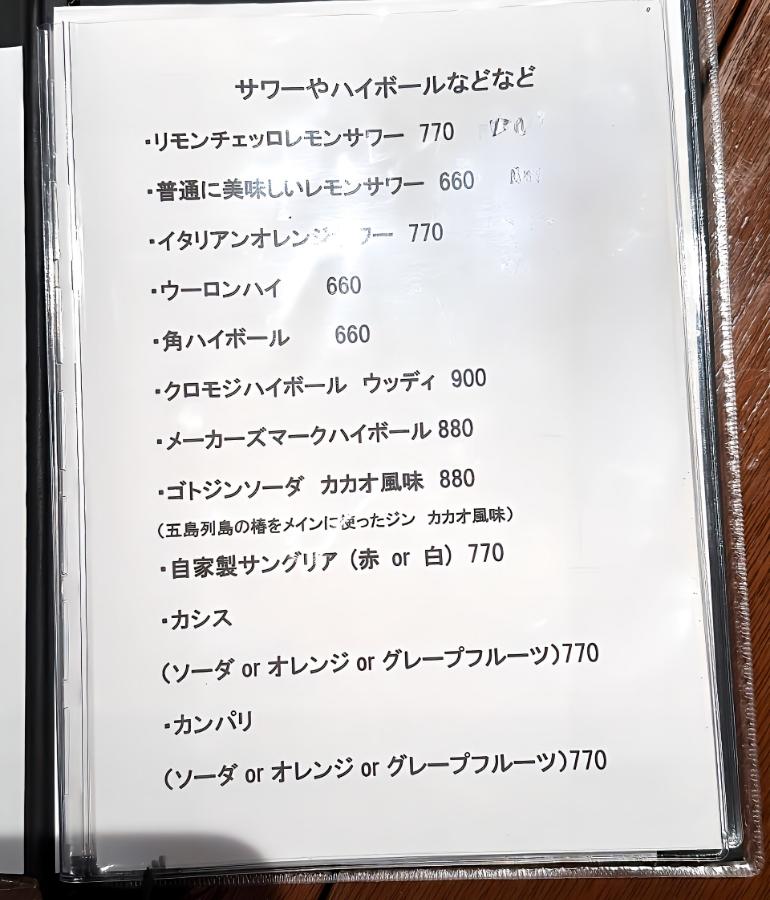 サワーやハイボールなどなど
・リモンチェッロレモンサワー 770
・普通に美味しいレモンサワー 660
・イタリアンオレンジ ワー 770
・ウーロンハイ 660
・角ハイボール 660
・クロモジハイボール ウッディ 900
・メーカーズマークハイボール 880
・ゴトジンソーダ カカオ風味 880
（五島列島の椿をメインに使ったジン カカオ風味）
・自家製サングリア（赤 or 白） 770
・カシス
（ソーダ or オレンジ or グレープフルーツ）770
・カンパリ
（ソーダ or オレンジ or グレープフルーツ）770